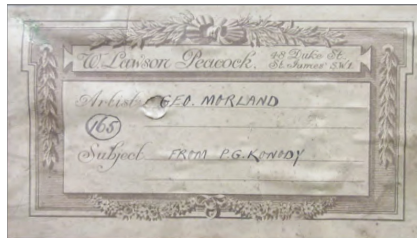 W. Lawson Peacock. 48 Duke St.
St. James' S.W.1.
Artist GEO. MORLAND
165
Subject FROM P.G. KONODY